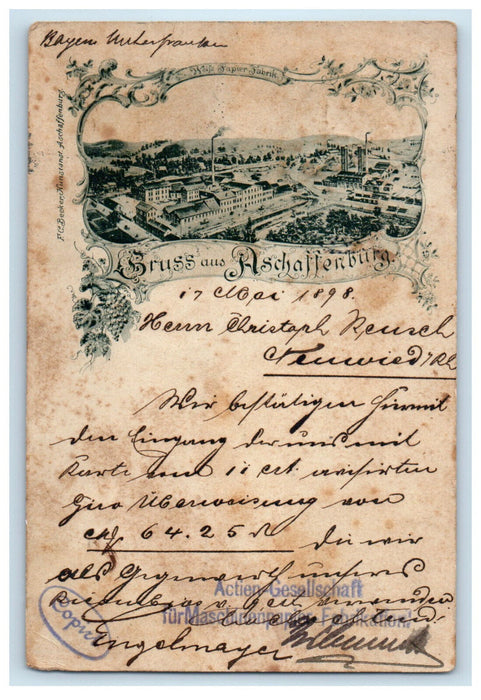 Bayern Unterfranken
Weiß Papier-Fabrik
F.C. Becker, Kunstanst. Aschaffenburg
Gruss aus Aschaffenburg.
17 Mai 1898.
Herrn Christoph Reusch
Neuwied /Rh
Wir bestätigen hiermit
den Eingang der uns mit
Karte vom 11 crt. avisirten
Giro Überweisung von
M 64.25
die wir
als Gegenwerth unseres
Actien-Gesellschaft
für Maschinenpapier-Fabrikation
Copirt
Engelmayer